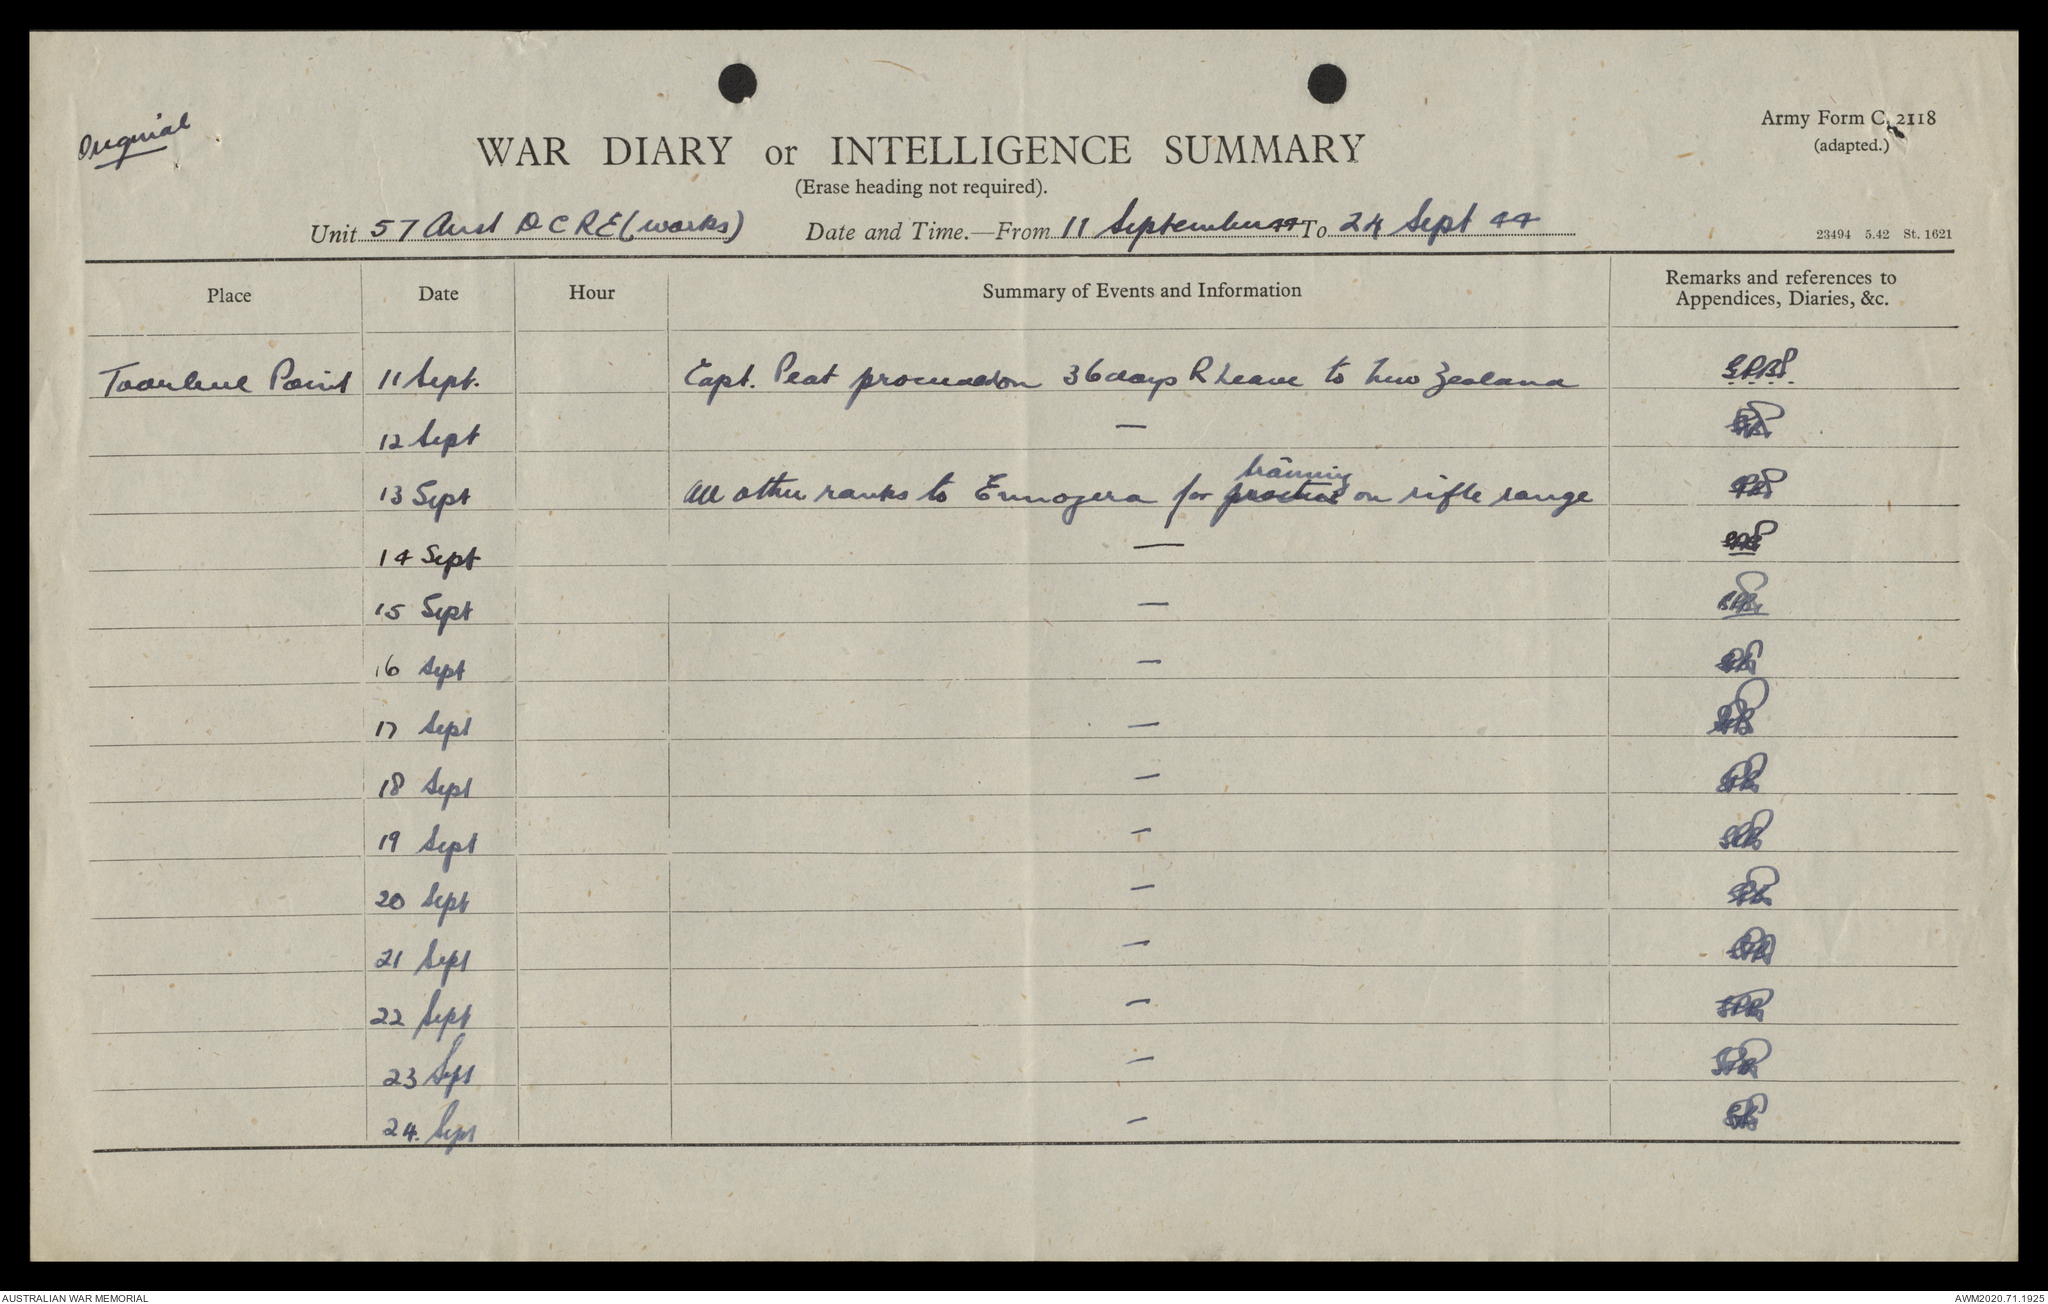 Original
Army Form C. 2118
(adapted.)
WAR DIARY or INTELLIGENCE SUMMARY
(Erase heading not required).
Unit 57 Aust D C R E (works) Date and Time.—From 11 September 44 To 24 Sept 44
23494 5.42 St. 1621
Place Date Hour Summary of Events and Information Remarks and references to
Appendices, Diaries, &c.
Point 11 Sept. Capt. Peat 36 days R Leave to New Zealand
12 Sept —
training
13 Sept All other ranks to Ennogera for practice on rifle range
14 Sept —
15 Sept —
16 Sept —
17 Sept —
18 Sept —
19 Sept —
20 Sept —
21 Sept —
22 Sept —
23 Sept —
24. Sept —
AUSTRALIAN WAR MEMORIAL
AWM2020.71.1925